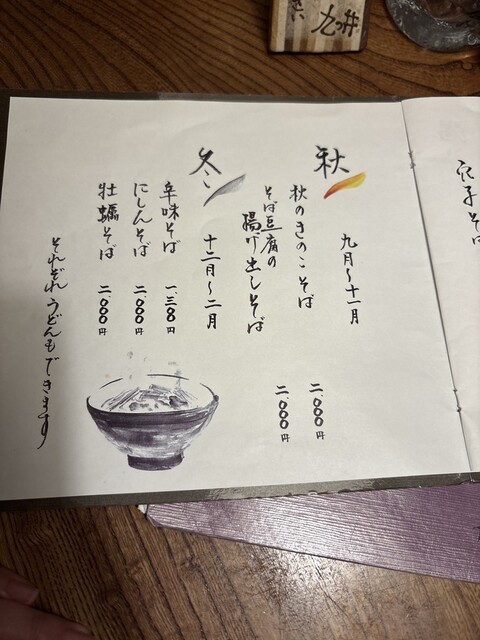 穴子そば
秋
九月〜十一月
秋のきのこそば 二、〇〇〇円
そば豆腐の
揚げ出しそば 二、〇〇〇円
冬
十二月〜二月
辛味そば 一、三〇〇円
にしんそば 二、〇〇〇円
牡蠣そば 二、〇〇〇円
それぞれうどんもできます